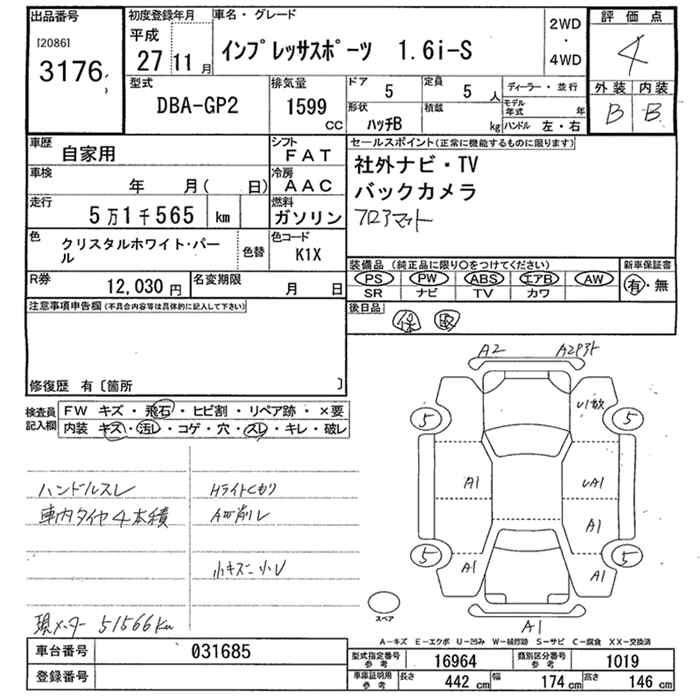 出品番号
[2086]
3176
初度登録年月
平成
27 11 月
車名・グレード
インプレッサスポーツ 1.6i-S
2WD
・
4WD
評価点
4
外装 内装
B B
型式
DBA-GP2
排気量
1599
CC
ドア
5
定員
5 人
形状
ハッチB
積載
kg
ディーラー・並行
モデル年式 年
ハンドル 左・右
車歴
自家用
シフト
FAT
車検
年 月( 日)
冷房
AAC
走行
5万1千565 km
燃料
ガソリン
色
クリスタルホワイト・パール
色替
色コード
K1X
R券
12,030 円
名変期限
月 日
セールスポイント(正常に機能するものに限ります)
社外ナビ・TV
バックカメラ
フロアマット
装備品(純正品に限り〇をつけてください)
PS PW ABS エアB AW
SR ナビ TV カワ
新車保証書
有・無
後日品
保 取
注意事項申告欄(不具合内容等は具体的に記入して下さい)
修復歴 有〔箇所 〕
検査員記入欄
FW キズ・飛石・ヒビ割・リペア跡・×要
内装 キズ・汚レ・コゲ・穴・スレ・キレ・破レ
ハンドルスレ
車内タイヤ4本積
Hライトくもり
AW削レ
小キズ 小U
現メーター 51566Km
A2
A2P外
5
5
A1
UA1
A1
A1
A1
5
5
A1
スペア
A-キズ E-エクボ U-凹み W-補修跡 S-サビ C-腐食 XX-交換済
車台番号
031685
登録番号
型式指定番号 参考
16964
類別区分番号 参考
1019
車庫証明用 参考
長さ 442 cm
幅 174 cm
高さ 146 cm